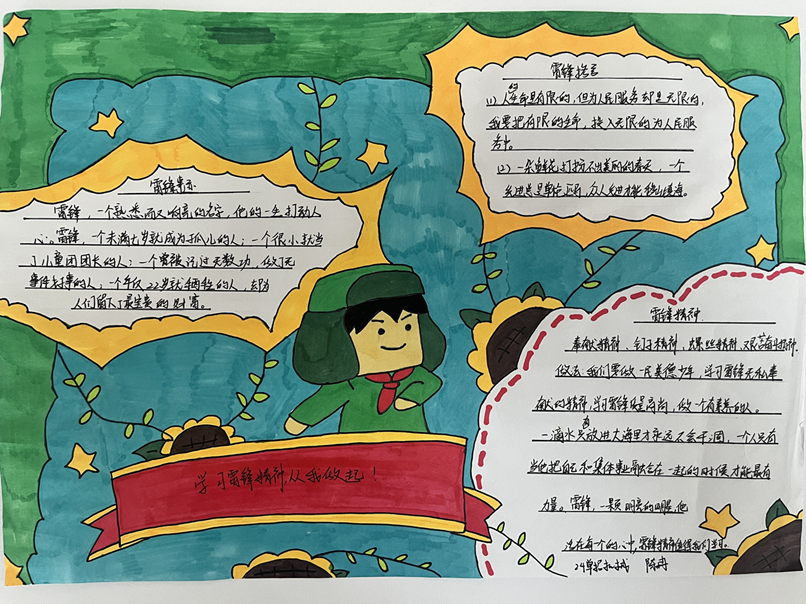 雷锋事迹
雷锋，一个熟悉而又响亮的名字，他的一生打动人
心。雷锋，一个未满七岁就成为孤儿的人；一个很小就当
了儿童团团长的人；一个曾被记过无数功，做了无
数件好事的人，一个年仅22岁就牺牲的人，却为
人们留下了最宝贵的财富。
雷锋格言
(1) 人的生命是有限的，但为人民服务却是无限的，
我要把有限的生命，投入无限的为人民服
务中。
(2) 一朵鲜花打扮不出美丽的春天，一个
先进总是单枪匹马，众人先进才能移山填海。
雷锋精神
奉献精神，钉子精神，螺丝钉精神，艰苦奋斗精神。
做法：我们要做一民美德少年，学习雷锋无私奉
献的精神，学习雷锋 高尚，做一个有素养的人。
一滴水只有放进大海里才永远不会干涸，一个人只有
当他把自己和集体事业融合在一起的时候才能最有
力量。雷锋，一颗明亮的眼，他
活在每个的心中，雷锋精神值得我们学习。
陈冉
学习雷锋精神从我做起！